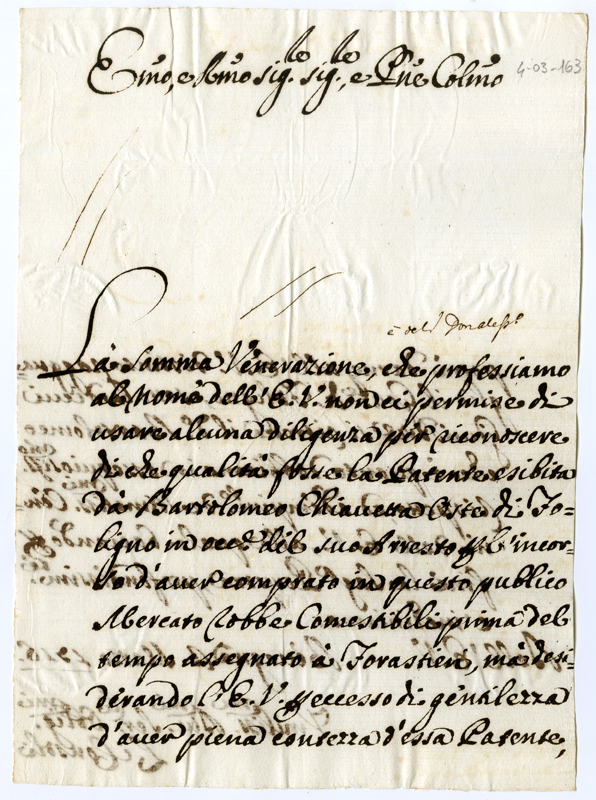 Emo, e Rmo sig.re sig.re, e Pne Colmo
4-03-163
La somma Venerazione, che professiamo
al Nome dell'E. V. non ci permise di
usare alcuna diligenza per riconoscere
di che qualità fosse la Patente esibita
da Bartolomeo Chiavetta Oste di Fo=
ligno in occ.e del suo Arresto p l'incor=
so d'aver comprato in questo publico
Mercato robbe Comestibili prima del
tempo assegnato à Forastieri, mà desi=
derando l'E. V. p eccesso di gentilezza
d'aver piena contezza d'essa Patente,